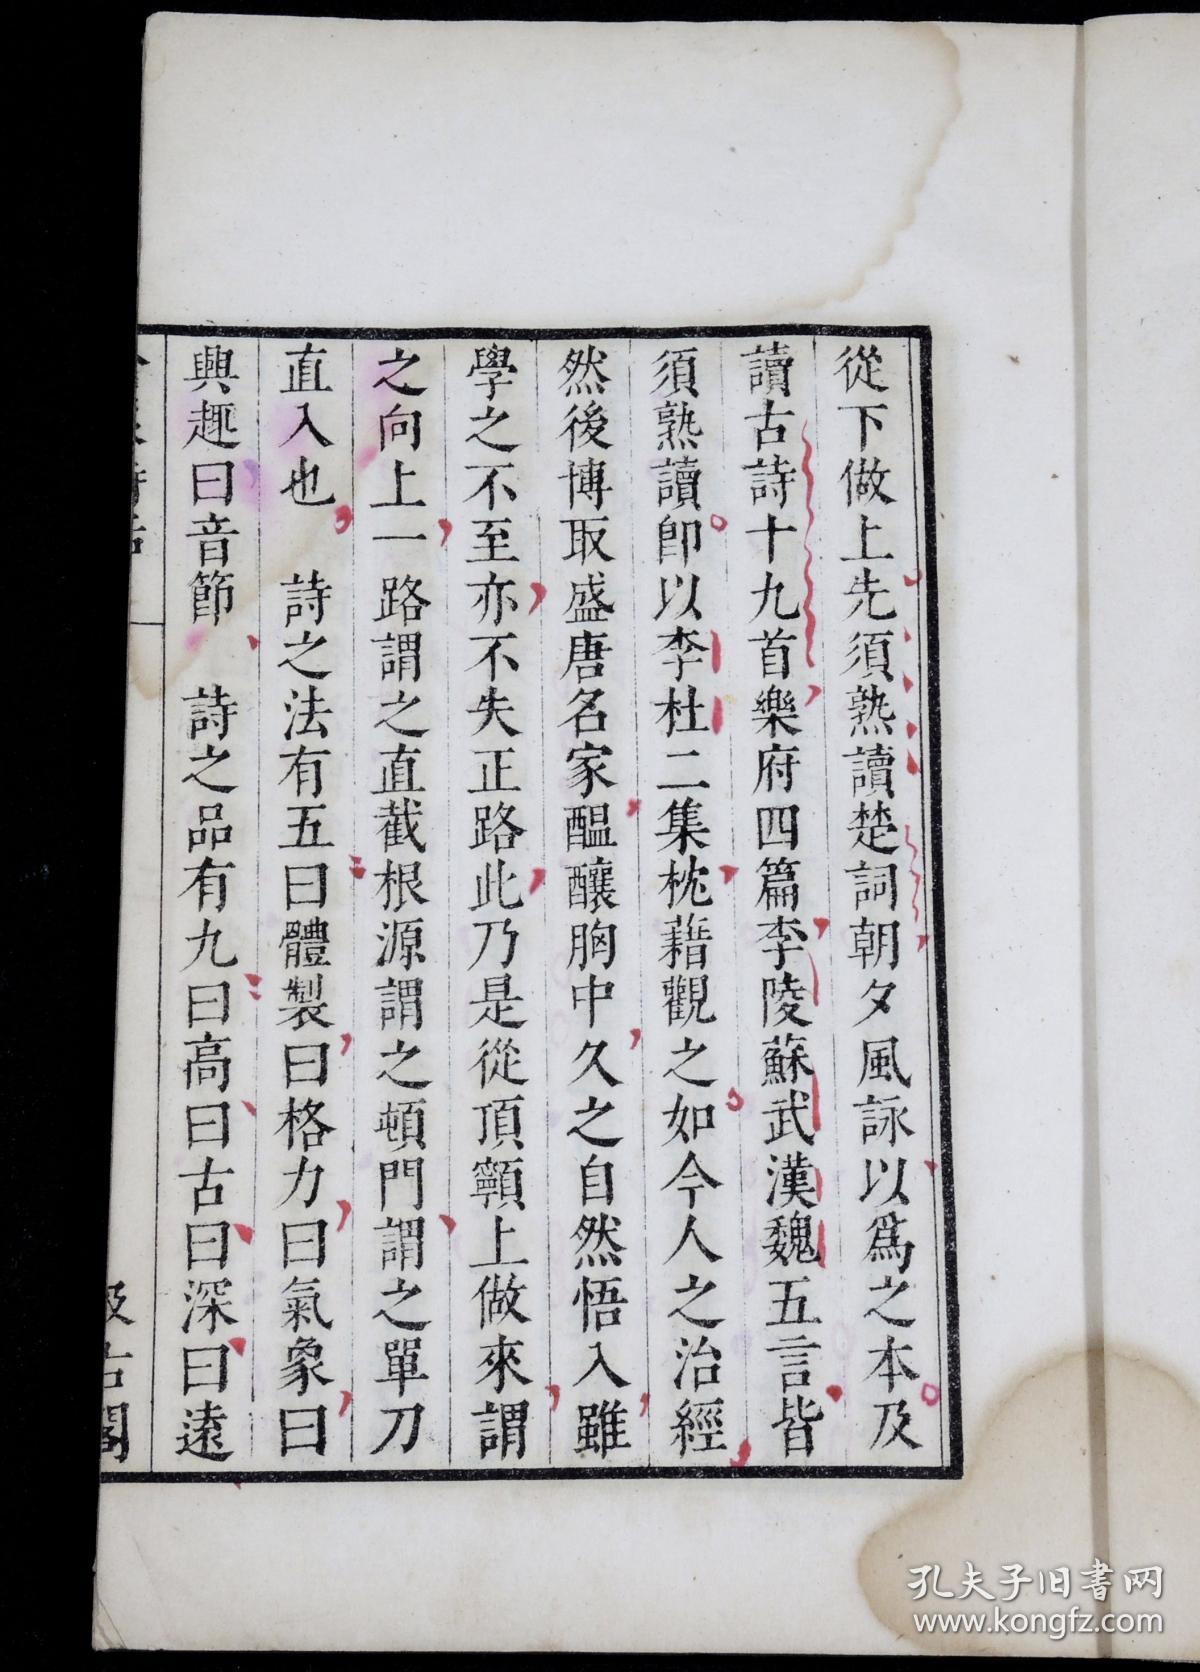 從下做上先須熟讀楚詞朝夕風詠以爲之本及
讀古詩十九首樂府四篇李陵蘇武漢魏五言皆
須熟讀卽以李杜二集枕藉觀之如今人之治經
然後博取盛唐名家醞釀胸中久之自然悟入雖
學之不至亦不失正路此乃是從頂𩕳上做來謂
之向上一路謂之直截根源謂之頓門謂之單刀
直入也　詩之法有五曰體製曰格力曰氣象曰
興趣曰音節　詩之品有九曰高曰古曰深曰遠
汲古閣
孔夫子旧書网
www.kongfz.com